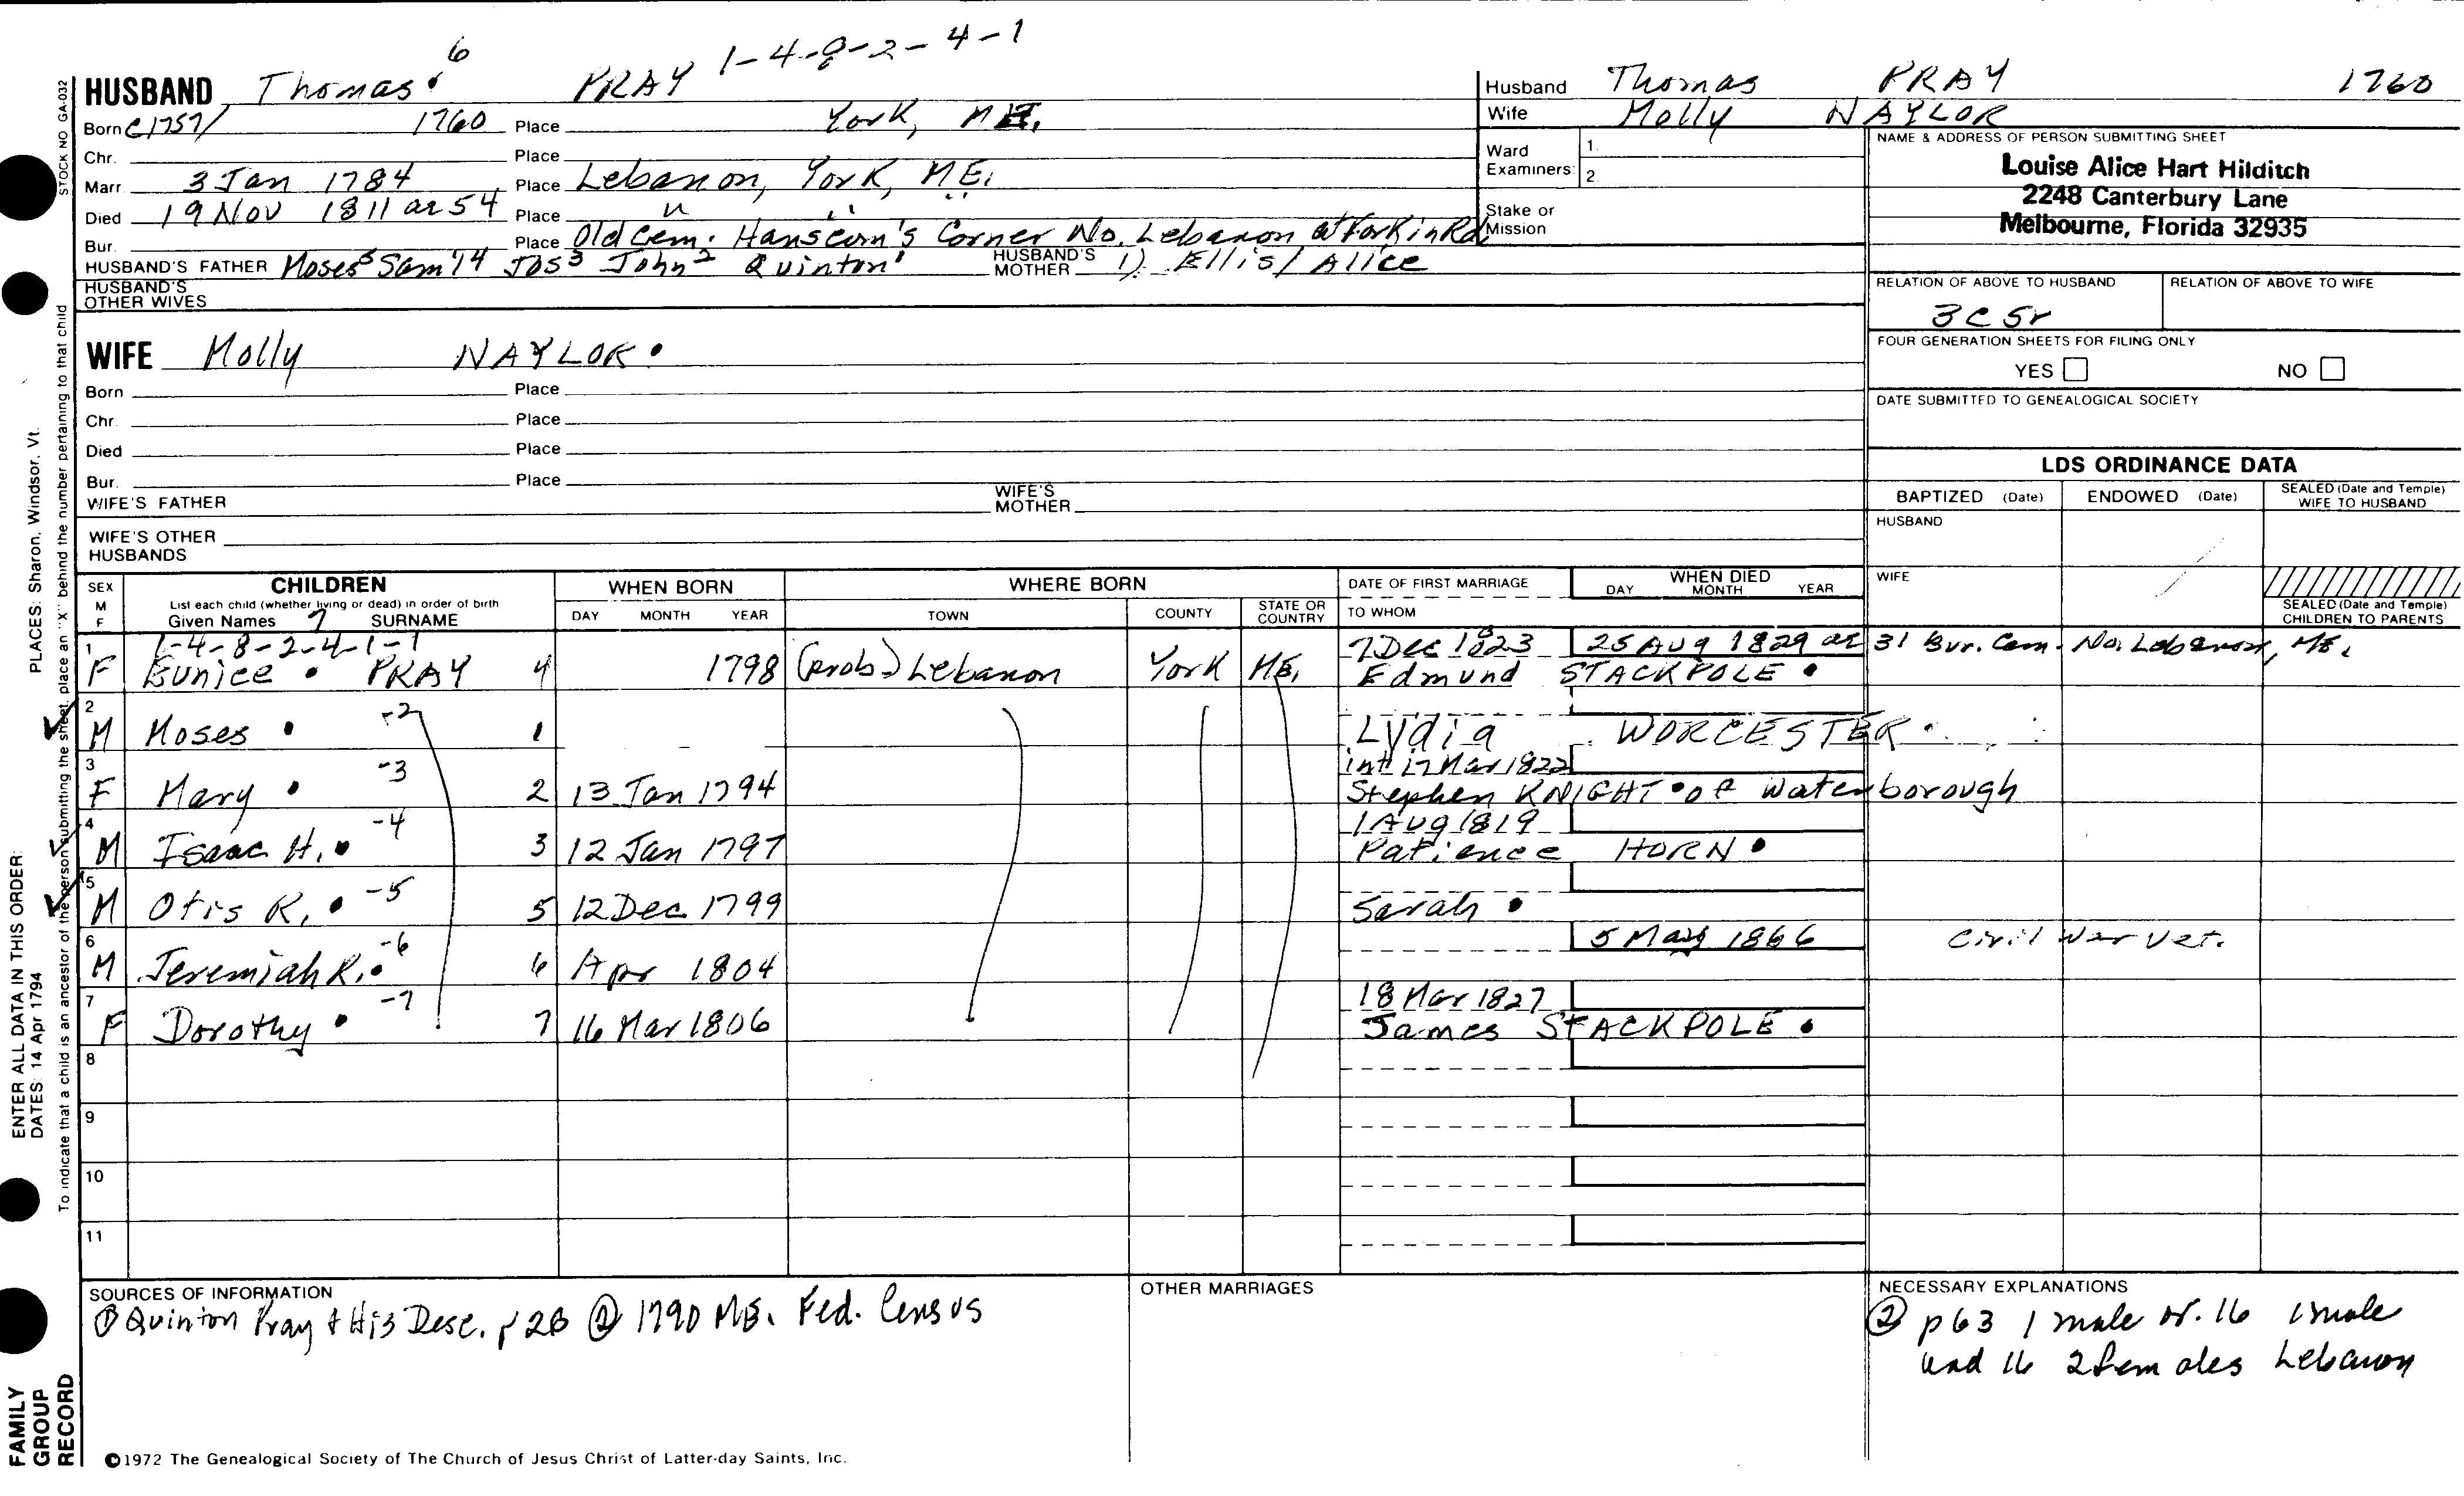 1-4-8-2-4-1
HUSBAND Thomas 6 PRAY
Born C1757/ 1760 Place York, ME.
Chr. Place
Marr. 3 Jan 1784 Place Lebanon, York, ME.
Died 19 Nov 1811 ae 54 Place " " "
Bur. Place Old Cem. Hanscom's Corner No. Lebanon at Rd.
HUSBAND'S FATHER Moses5 Sam'l4 Jos3 John2 Quinton1 HUSBAND'S MOTHER 1) Ellis/Alice
HUSBAND'S OTHER WIVES
WIFE Molly NAYLOR
Born Place
Chr. Place
Died Place
Bur. Place
WIFE'S FATHER WIFE'S MOTHER
WIFE'S OTHER HUSBANDS
Husband Thomas PRAY 1760
Wife Molly NAYLOR
Ward Examiners: 1. 2.
Stake or Mission
NAME & ADDRESS OF PERSON SUBMITTING SHEET
Louise Alice Hart Hilditch
2248 Canterbury Lane
Melbourne, Florida 32935
RELATION OF ABOVE TO HUSBAND RELATION OF ABOVE TO WIFE
3C 5r
FOUR GENERATION SHEETS FOR FILING ONLY
YES NO
DATE SUBMITTED TO GENEALOGICAL SOCIETY
LDS ORDINANCE DATA
BAPTIZED (Date) ENDOWED (Date) SEALED (Date and Temple) WIFE TO HUSBAND
HUSBAND
WIFE
SEALED (Date and Temple) CHILDREN TO PARENTS
SEX M F CHILDREN WHEN BORN WHERE BORN DATE OF FIRST MARRIAGE WHEN DIED
List each child (whether living or dead) in order of birth
Given Names 7 SURNAME DAY MONTH YEAR TOWN COUNTY STATE OR COUNTRY TO WHOM DAY MONTH YEAR
1 1-4-8-2-4-1-1 7 Dec 1823 25 Aug 1829 ae 31 Bur. Cem. No. Lebanon, ME.
F Eunice PRAY 4 1798 (prob) Lebanon York ME. Edmund STACKPOLE
2 -2
M Moses 1 Lydia WORCESTER
3 -3 int 17 Mar 1822
F Mary 2 13 Jan 1794 Stephen KNIGHT of Waterborough
4 -4 1 Aug 1819
M Isaac H. 3 12 Jan 1797 Patience HORN
5 -5
M Otis R. 5 12 Dec 1799 Sarah
6 -6 5 May 1866 Civil War Vet.
M Jeremiah R. 6 Apr 1804
7 -7 18 Mar 1827
F Dorothy 7 16 Mar 1806 James STACKPOLE
8
9
10
11
SOURCES OF INFORMATION
① Quinton Pray & His Desc. p 28 ② 1790 ME. Fed. Census
OTHER MARRIAGES
NECESSARY EXPLANATIONS
② p63 1 male ov. 16 1 male
und 16 2 females Lebanon
©1972 The Genealogical Society of The Church of Jesus Christ of Latter-day Saints, Inc.
STOCK NO GA-032
To indicate that a child is an ancestor of the person submitting the sheet, place an "X" behind the number pertaining to that child
PLACES: Sharon, Windsor, Vt.
ENTER ALL DATA IN THIS ORDER:
DATES: 14 Apr 1794
FAMILY
GROUP
RECORD